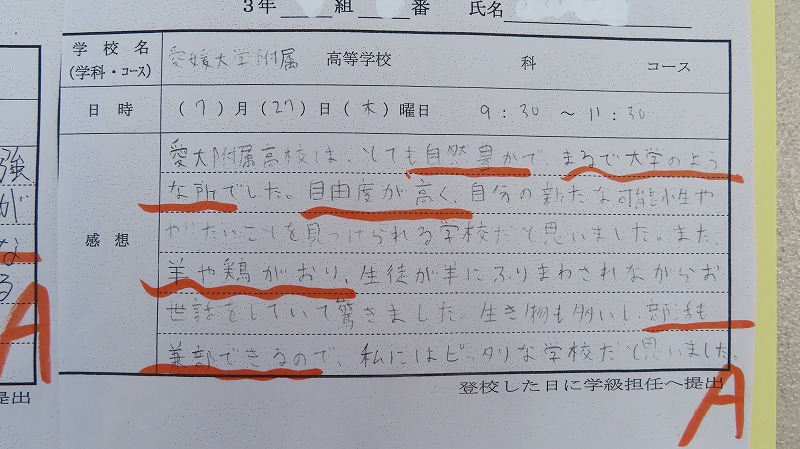 3年 組 番 氏名
学校名 愛媛大学附属 高等学校 科 コース
(学科・コース)
日時 (7)月(27)日(木)曜日 9:30 ～ 11:30
感想
愛大附属高校は、とても自然豊かで、まるで大学のよう
な所でした。自由度が高く、自分の新たな可能性や
やりたいことを見つけられる学校だと思いました。また、
羊や鶏がおり、生徒が羊にふりまわされながらお
世話をしていて驚きました。生き物も多いし、部活も
兼部できるので、私にはピッタリな学校だと思いました。
登校した日に学級担任へ提出
A
強
が
な
る
A
提出